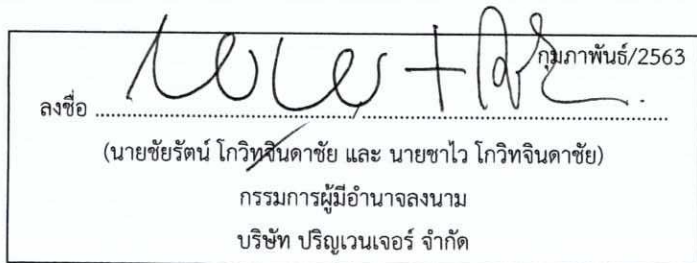 กุมภาพันธ์/2563
ลงชื่อ ........................................................................................
(นายชัยรัตน์ โกวิทจินดาชัย และ นายชาไว โกวิทจินดาชัย)
กรรมการผู้มีอำนาจลงนาม
บริษัท ปริญเวนเจอร์ จำกัด